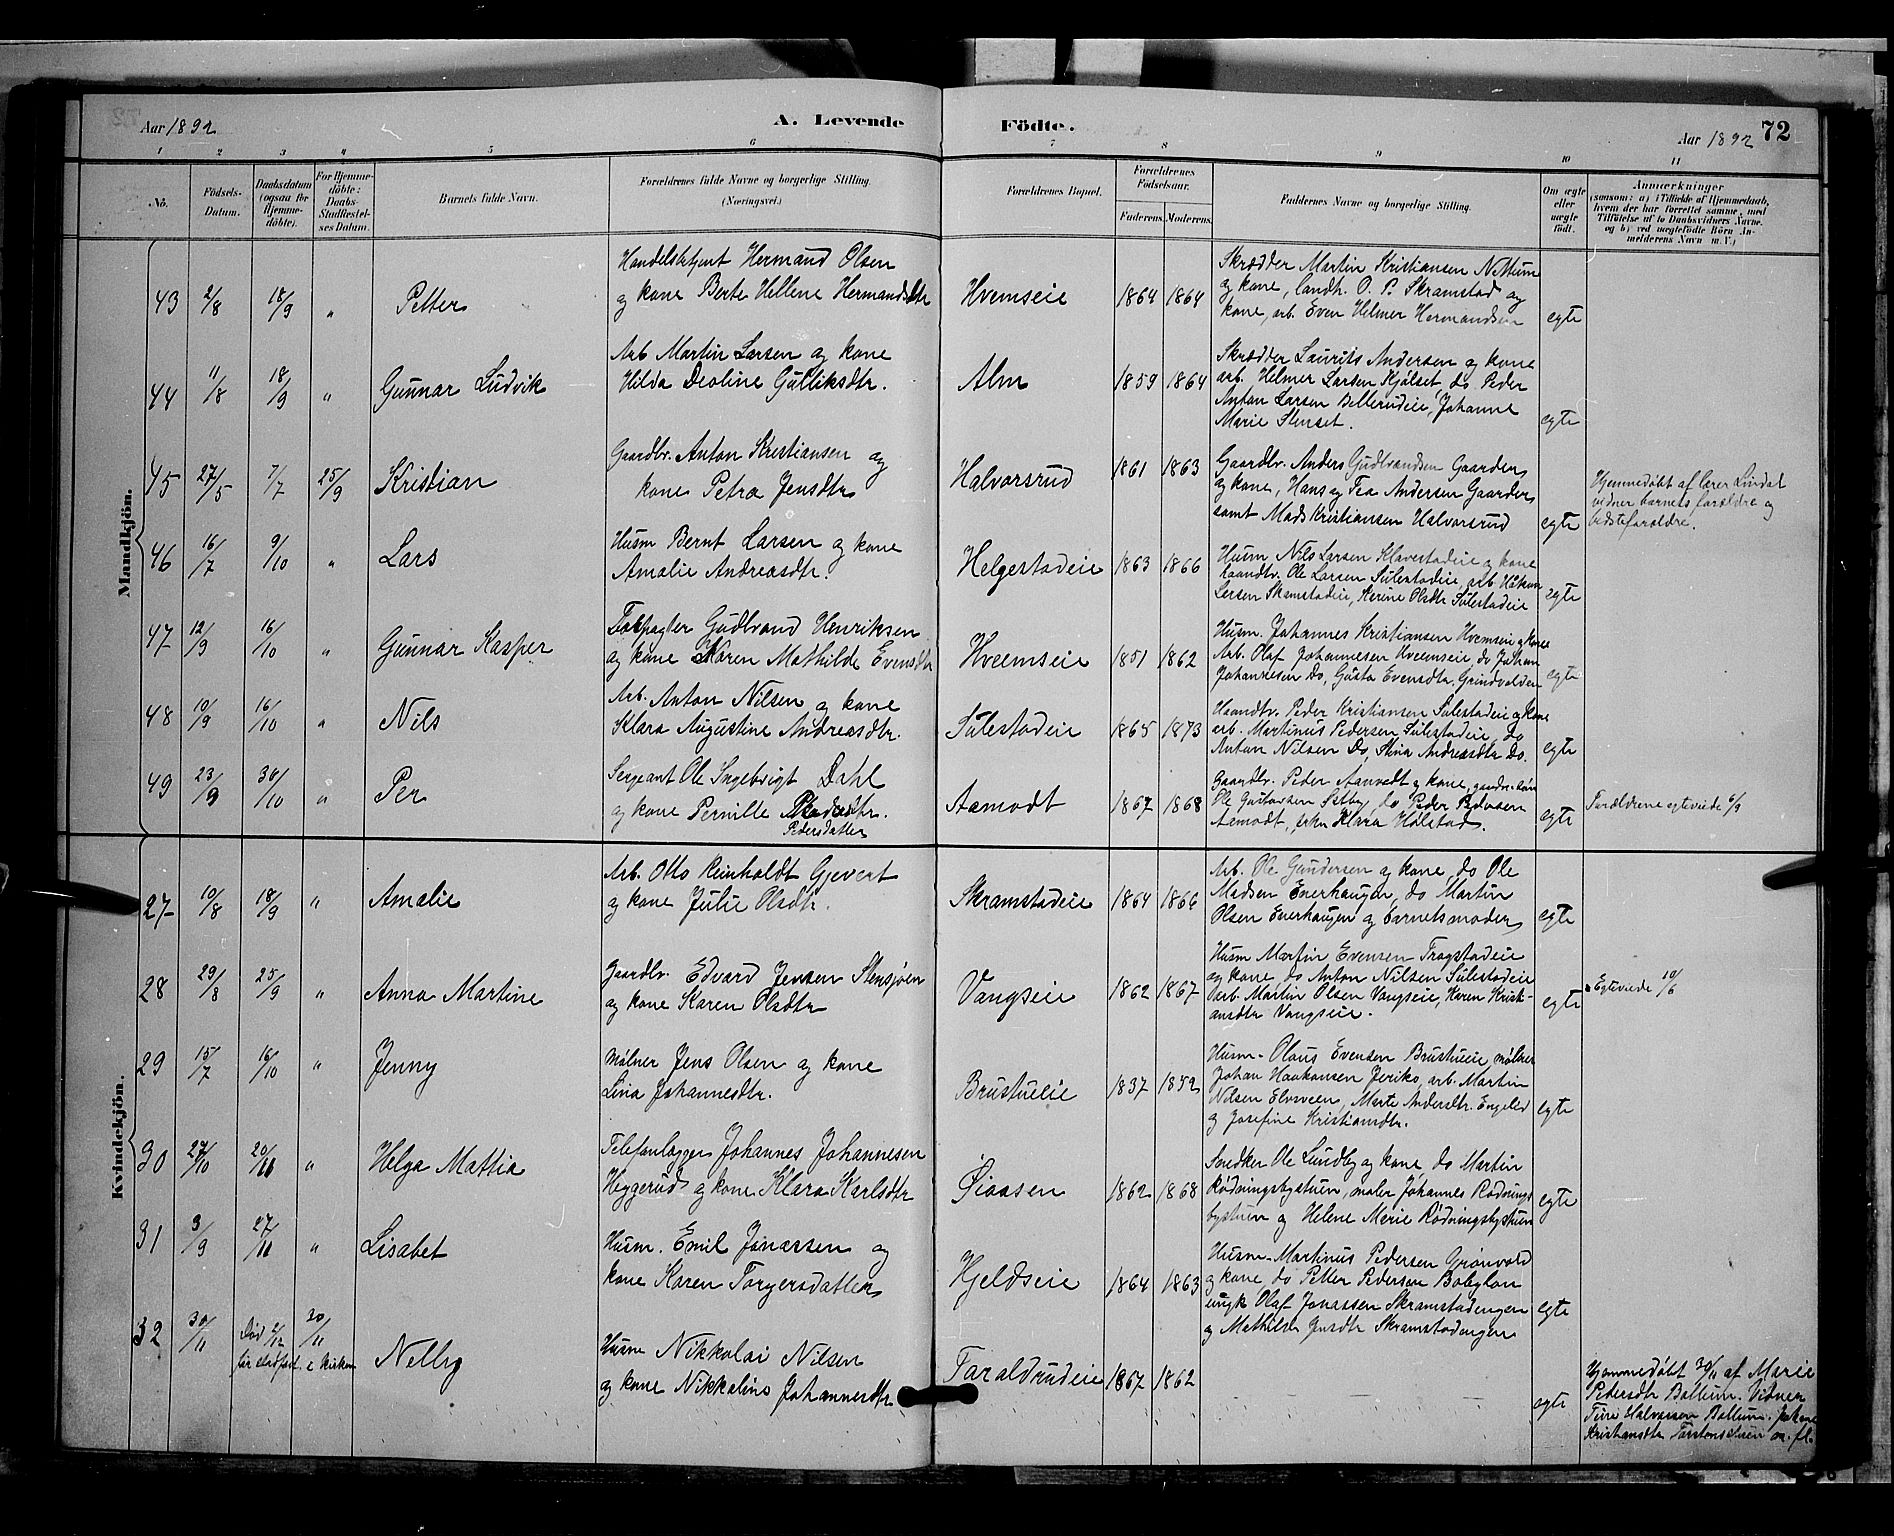 Aar 1892
A. Levende
Födte.
Aar 1892
72
1 2 3 4 5 6 7 8 9 10 11
No.
Födsels-
Datum.
Daabsdatum
(ogsaa for
Hjemme-
döbte).
For Hjemme-
döbte:
Daabs-
Stadfæstel-
ses Datum.
Barnets fulde Navn.
Forældrenes fulde Navne og borgerlige Stilling.
(Næringsvei.)
Forældrenes Bopæl.
Forældrenes
Födselsaar.
Faderens. Moderens.
Faddernes Navne og borgerlige Stilling.
Om ægte
eller
uægte
födt.
Anmærkninger
(saasom: a) i Tilfælde af Hjemmedaab,
hvem der har forrettet samme, med
Tilföielse af to Daabsvidners Navne.
og b) ved uægtefödte Börn An-
melderens Navn m. V.)
Mandkjön.
43 2/8 18/9 " Petter
Handelsbetjent Hermand Olsen
og kone Berte Hellene Hermandsdtr
Hvemseie 1864 1864
Skrædder Martin Kristiansen Nettum
og kone, landh. O. P. Skramstad og
kone, arb. Even Helmer Hermandsen
egte
44 11/8 18/9 " Gunnar Ludvik
Arb Martin Larsen og kone
Hilda Deoline Gulliksdtr.
Alm 1859 1864
Skrædder Laurits Andersen og kone
arb. Helmer Larsen Kjølset do Peder
Anton Larsen Bellerudeie, Johanne
Marie Stenset.
egte
45 27/5 7/7 25/9 Kristian
Gaardbr. Anton Kristiansen og
kone Petra Jensdtr
Halvorsrud 1861 1863
Gaardbr. Anders Gudbrandsen Gaarder
og kone, Hans og Tea Andersen Gaarder
samt Mads Kristiansen Halvorsrud
egte
Hjemmedøbt af lærer Lindal
vidner barnets forældre og
bedsteforældre.
46 16/7 9/10 " Lars
Husm Bernt Larsen og kone
Amalie Andreasdtr.
Helgestadeie 1863 1866
Husm Nils Larsen Klavestadeie og kone
haandv. Ole Larsen Sulestadeie, arb Håkon
Larsen Skamstadeie, Karine Olsdtr Sulestadeie
egte
47 12/9 16/10 " Gunnar Kasper
Forpagter Gudbrand Henriksen
og kone Karen Mathilde Evensdtr
Hveemseie 1851 1862
Husm. Johannes Kristiansen Hvemseie og kone
Arb. Olaf Johannesen Hveemseie, do Johan
Johannesen Do, Gusta Evensdtr. Grindvolden
egte
48 10/9 16/10 " Nils
Arb. Anton Nilsen og kone
Klara Augustine Andreasdtr.
Sulestadeie 1865 1873
Haandv. Peder Kristiansen Sulestadeie og kone
arb. Martinus Pedersen Sulestadeie, do
Anton Nilsen Do, Stina Andreasdtr Do.
egte
49 23/9 30/10 " Per
Sergeant Ole Ingebrigt Dahl
og kone Pernille
Pedersdatter
Aamodt 1867 1868
Gaardbr. Peder Aanvedt og kone, gaardbr.søn
Ole Gustavsen Sætby, do Peder Pedersen
Aamodt, pike Klara Holstad.
egte
Forældrene egteviede 6/9
Kvindekjön.
27 10/8 18/9 " Amalie
Arb. Otto Reinholdt Gjevert
og kone Julie Olsdtr.
Skramstadeie 1864 1866
Arb. Ole Gundersen og kone, do Ole
Madsen Enerhaugen, do Martin
Olsen Enerhaugen og barnets moder
egte
28 29/8 25/9 " Anna Martine
Gaardbr. Edvard Jensen Stensjøen
og kone Karen Olsdtr
Vangseie 1862 1867
Husm Martin Evensen Trogstadeie
og kone, do Anton Nilsen Sulestadeie
arb. Martin Olsen Vangseie, Karen Kristi-
ansdtr Vangseie.
egte
Egteviede 10/6
29 15/7 16/10 " Jenny
Mølner Jens Olsen og kone
Lina Johannesdtr.
Brustueie 1837 1852
Husm. Olaus Evensen Brustueie, mølner
Johan Haakonsen Jeriko, arb. Martin
Nilsen Elvsveen, Marte Andersdtr. Engelid
og Josefine Kristiansdtr.
egte
30 27/10 20/11 " Helga Mattia
Telefonlægger Johannes Johannesen
Heggerud og kone Klara Karlsdtr
Øiaasen 1862 1868
Snedker Ole Lundby og kone do Martin
Rødningsbystuen, maler Johannes Rødnings
bystuen og Helene Marie Rødningsbystuen
egte
31 3/9 27/11 " Lisabet
Husm. Emil Jonassen og
kone Karen Torgersdatter
Hjeldseie 1864 1863
Husm. Martinus Pedersen Grønvold
og kone, do Petter Pedersen Babylon
ungk Olaf Jonassen Skramstadengen
og Mathilde Jensdtr Skramstadengen
egte
32 30/11 Død 2/12 30/11
før stadfæst. i kirken
Nelly
Husm Nikkolai Nilsen
og kone Nikkoline Johannesdtr
Taraldrudeie 1867 1862
egte
Hjemmedøbt 30/11 af Marie
Pedersdtr Bollum. Vidner
Halvorsen Bollum. Johan
Kristiansdtr Torstenstuen m. fl.